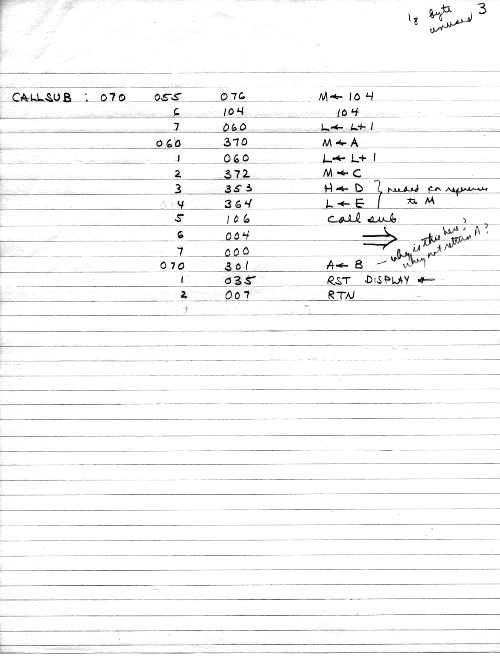 18 Byte 3
unused
CALLSUB : 070 055 076 M← 104
6 104 104
7 060 L← L+1
060 370 M← A
1 060 L← L+1
2 372 M← C
3 353 H← D } needed on reference
4 364 L← E to M
5 106 call sub
6 004 ⇒ why is this here?
7 000 why not return A?
070 301 A← B —
1 035 RST DISPLAY ←
2 007 RTN
7